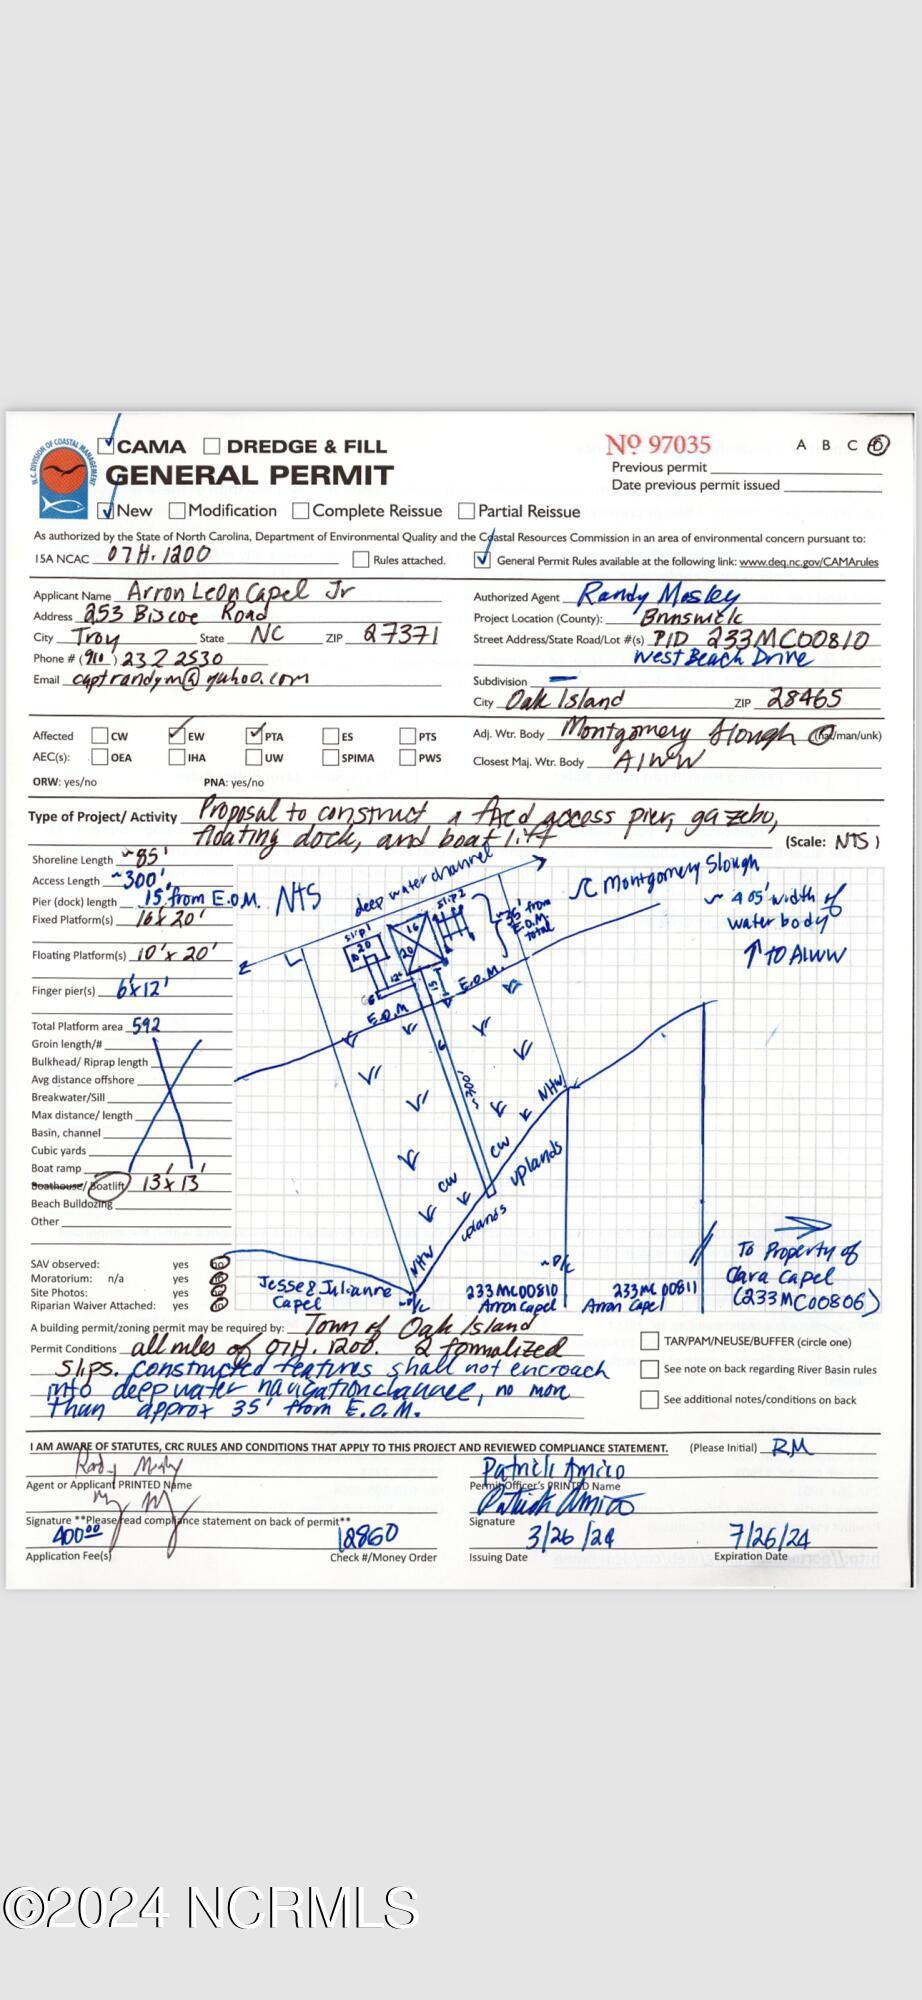 N.C. DIVISION OF COASTAL MANAGEMENT
CAMA DREDGE & FILL
GENERAL PERMIT
Nº 97035 A B C D
Previous permit
Date previous permit issued
New Modification Complete Reissue Partial Reissue
As authorized by the State of North Carolina, Department of Environmental Quality and the Coastal Resources Commission in an area of environmental concern pursuant to:
15A NCAC 07H.1200 Rules attached. General Permit Rules available at the following link: www.deq.nc.gov/CAMArules
Applicant Name Arron Leon Capel Jr
Address 253 Biscoe Road
City Troy State NC ZIP 27371
Phone # (910) 232 2530
Email captrandym@yahoo.com
Authorized Agent Randy Mosley
Project Location (County): Brunswick
Street Address/State Road/Lot #(s) PID 233MC00810
West Beach Drive
Subdivision —
City Oak Island ZIP 28465
Affected CW EW PTA ES PTS
AEC(s): OEA IHA UW SPIMA PWS
ORW: yes/no PNA: yes/no
Adj. Wtr. Body Montgomery Slough (nat/man/unk)
Closest Maj. Wtr. Body AIWW
Type of Project/ Activity Proposal to construct a fixed access pier, gazebo,
floating dock, and boat lift (Scale: NTS)
Shoreline Length ~85'
Access Length ~300'
Pier (dock) length 15' from E.O.M.
Fixed Platform(s) 16'x20'
Floating Platform(s) 10'x20'
Finger pier(s) 6'x12'
Total Platform area 592
Groin length/#
Bulkhead/ Riprap length
Avg distance offshore
Breakwater/Sill
Max distance/ length
Basin, channel
Cubic yards
Boat ramp
Boathouse/ Boatlift 13'x13'
Beach Bulldozing
Other
SAV observed: yes
Moratorium: n/a yes
Site Photos: yes
Riparian Waiver Attached: yes
NTS
deep water channel
Montgomery Slough
~405' width of
water body
↑ TO AIWW
slip1
slip2
20
16
20
12'
6'
15
~35' from
E.O.M.
total
E.O.M.
E.O.M
6
~300'
NHW
CW
uplands
CW
uplands
NHW
~P/L
~P/L
Jesse & Julianne
Capel
233MC00810
Arron Capel
233MC00811
Arron Capel
To Property of
Clara Capel
(233MC00806)
A building permit/zoning permit may be required by: Town of Oak Island
Permit Conditions all rules of 07H.1200. 2 formalized
slips. Constructed features shall not encroach
into deep water navigation channel, no more
than approx 35' from E.O.M.
TAR/PAM/NEUSE/BUFFER (circle one)
See note on back regarding River Basin rules
See additional notes/conditions on back
I AM AWARE OF STATUTES, CRC RULES AND CONDITIONS THAT APPLY TO THIS PROJECT AND REVIEWED COMPLIANCE STATEMENT. (Please Initial) RM
Randy Mosley
Agent or Applicant PRINTED Name
Patrick Amico
Permit Officer's PRINTED Name
Signature **Please read compliance statement on back of permit**
Patrick Amico
Signature
400.00 12860
Application Fee(s) Check #/Money Order
3/26/24 7/26/24
Issuing Date Expiration Date
©2024 NCRMLS